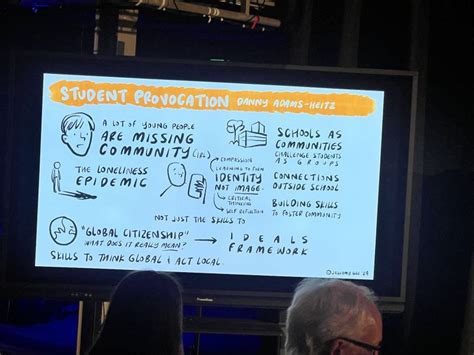 STUDENT PROVOCATION DANNY ADAMS-HEITZ
A LOT OF YOUNG PEOPLE
ARE MISSING
COMMUNITY (IRL)
THE LONELINESS
EPIDEMIC
COMPASSION
LEARNING TO FORM
IDENTITY
NOT IMAGE.
CRITICAL
THINKING
SELF REFLECTION
SCHOOLS AS
COMMUNITIES
CHALLENGE STUDENTS
AS GROUPS
CONNECTIONS
OUTSIDE SCHOOL
BUILDING SKILLS
TO FOSTER COMMUNITY
NOT JUST THE SKILLS TO
"GLOBAL CITIZENSHIP"
WHAT DOES IT REALLY MEAN?
IDEALS
FRAMEWORK
SKILLS TO THINK GLOBAL & ACT LOCAL.